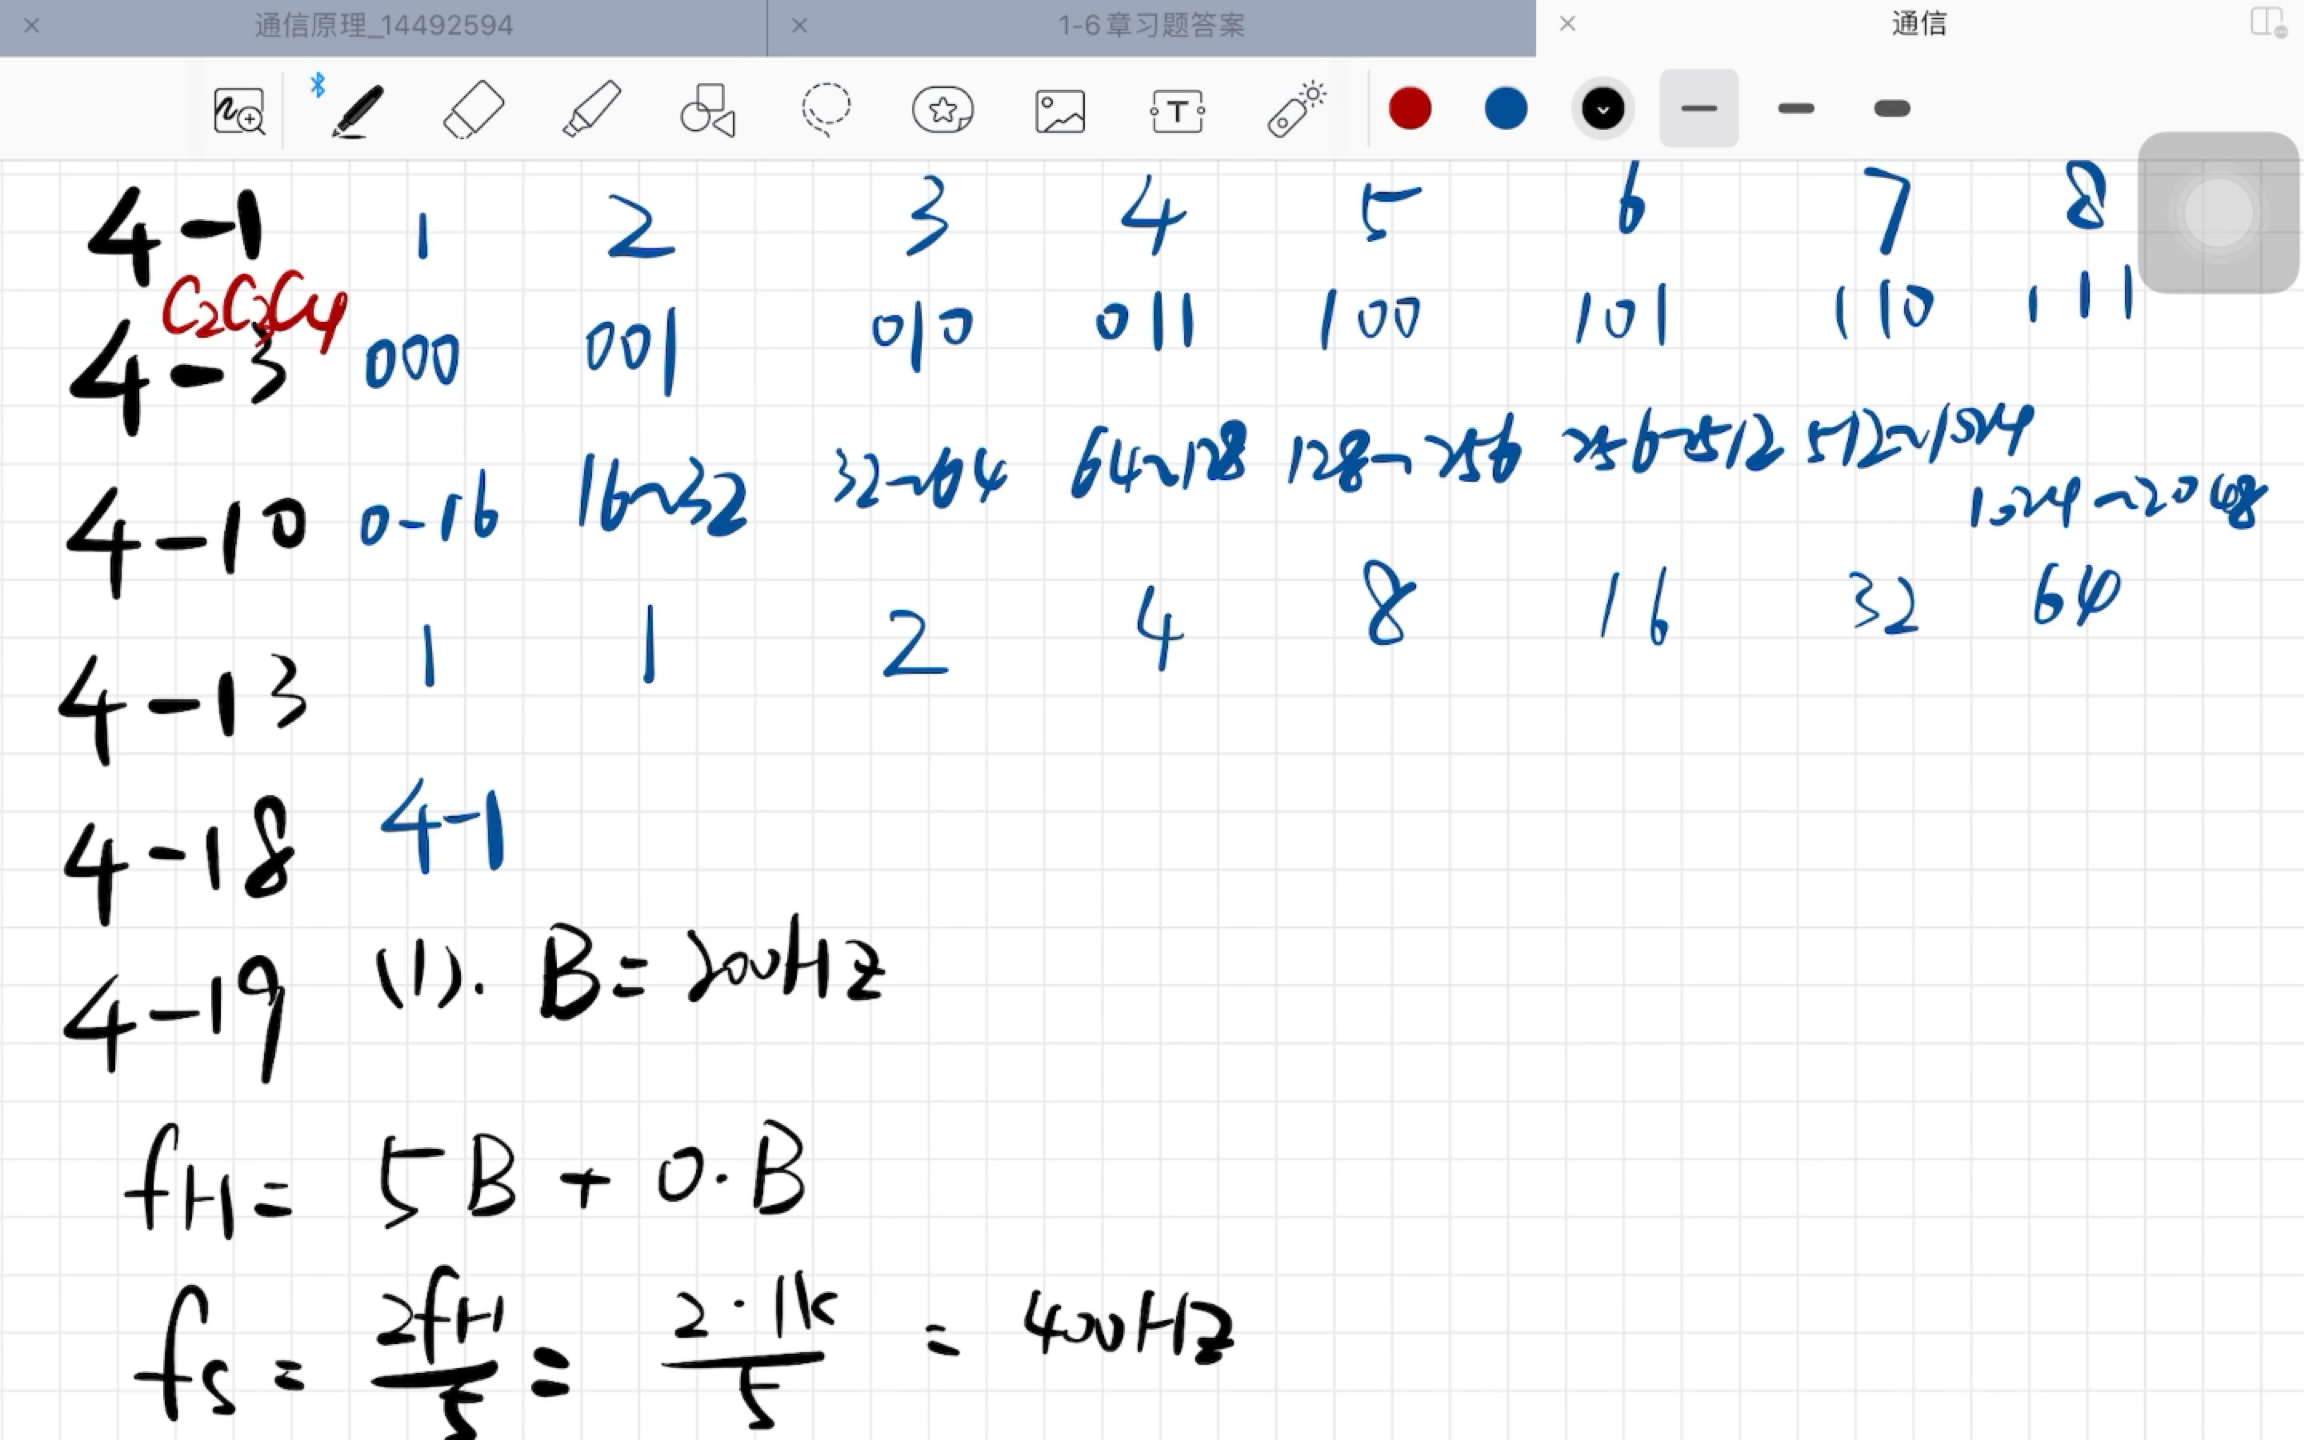 通信原理_14492594 1-6章习题答案 通信
4-1 1 2 3 4 5 6 7 8
C2C3C4
4-3 000 001 010 011 100 101 110 111
4-10 0-16 16~32 32~64 64~128 128~256 256~512 512~1024 1024~2048
4-13 1 1 2 4 8 16 32 64
4-18 4-1
4-19 (1). B=200HZ
fH= 5B+0·B
fs = 2fH/5 = 2·1k/5 = 400HZ